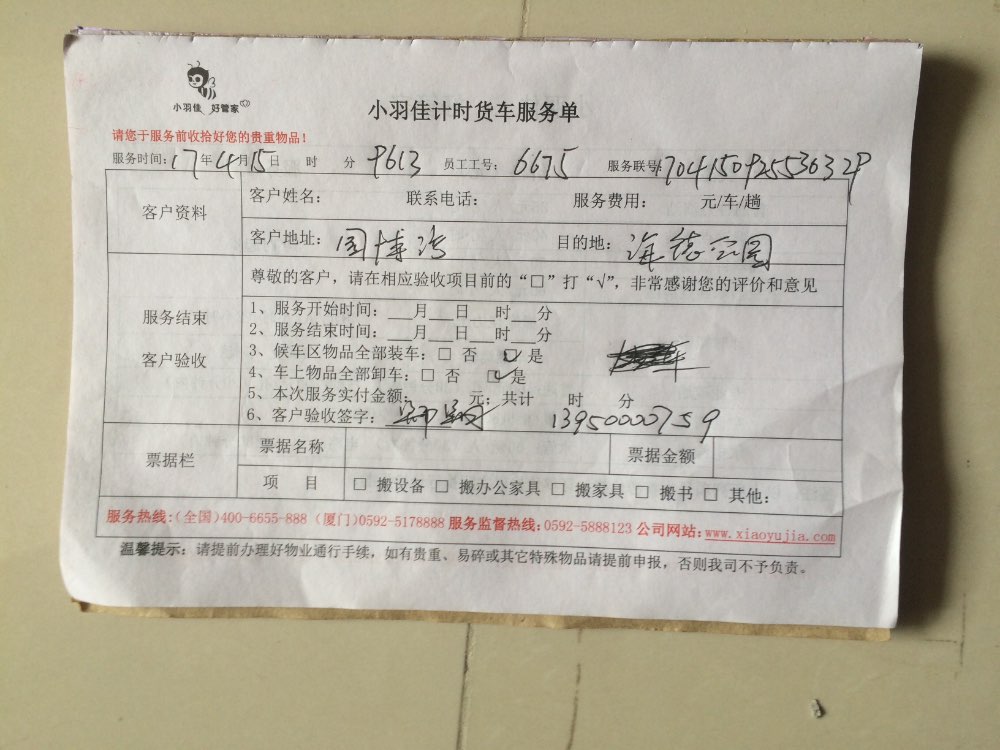 小羽佳 好管家
小羽佳计时货车服务单
请您于服务前收拾好您的贵重物品！
服务时间：17年4月15日 时 分 9613 员工工号： 6675 服务联号
客户资料
客户姓名： 联系电话： 服务费用： 元/车/趟
客户地址： 国博湾 目的地： 海德公园
服务结束
客户验收
尊敬的客户，请在相应验收项目前的“□”打“√”，非常感谢您的评价和意见
1、服务开始时间：___月___日___时___分
2、服务结束时间：___月___日___时___分
3、候车区物品全部装车：□ 否 ☑ 是
4、车上物品全部卸车：□ 否 ☑ 是
5、本次服务实付金额： 元；共计 时 分
6、客户验收签字： 13950000759
票据栏
票据名称 票据金额
项 目 □ 搬设备 □ 搬办公家具 □ 搬家具 □ 搬书 □ 其他：
服务热线：(全国)400-6655-888 (厦门)0592-5178888 服务监督热线：0592-5888123 公司网站：www.xiaoyujia.com
温馨提示：请提前办理好物业通行手续，如有贵重、易碎或其它特殊物品请提前申报，否则我司不予负责。